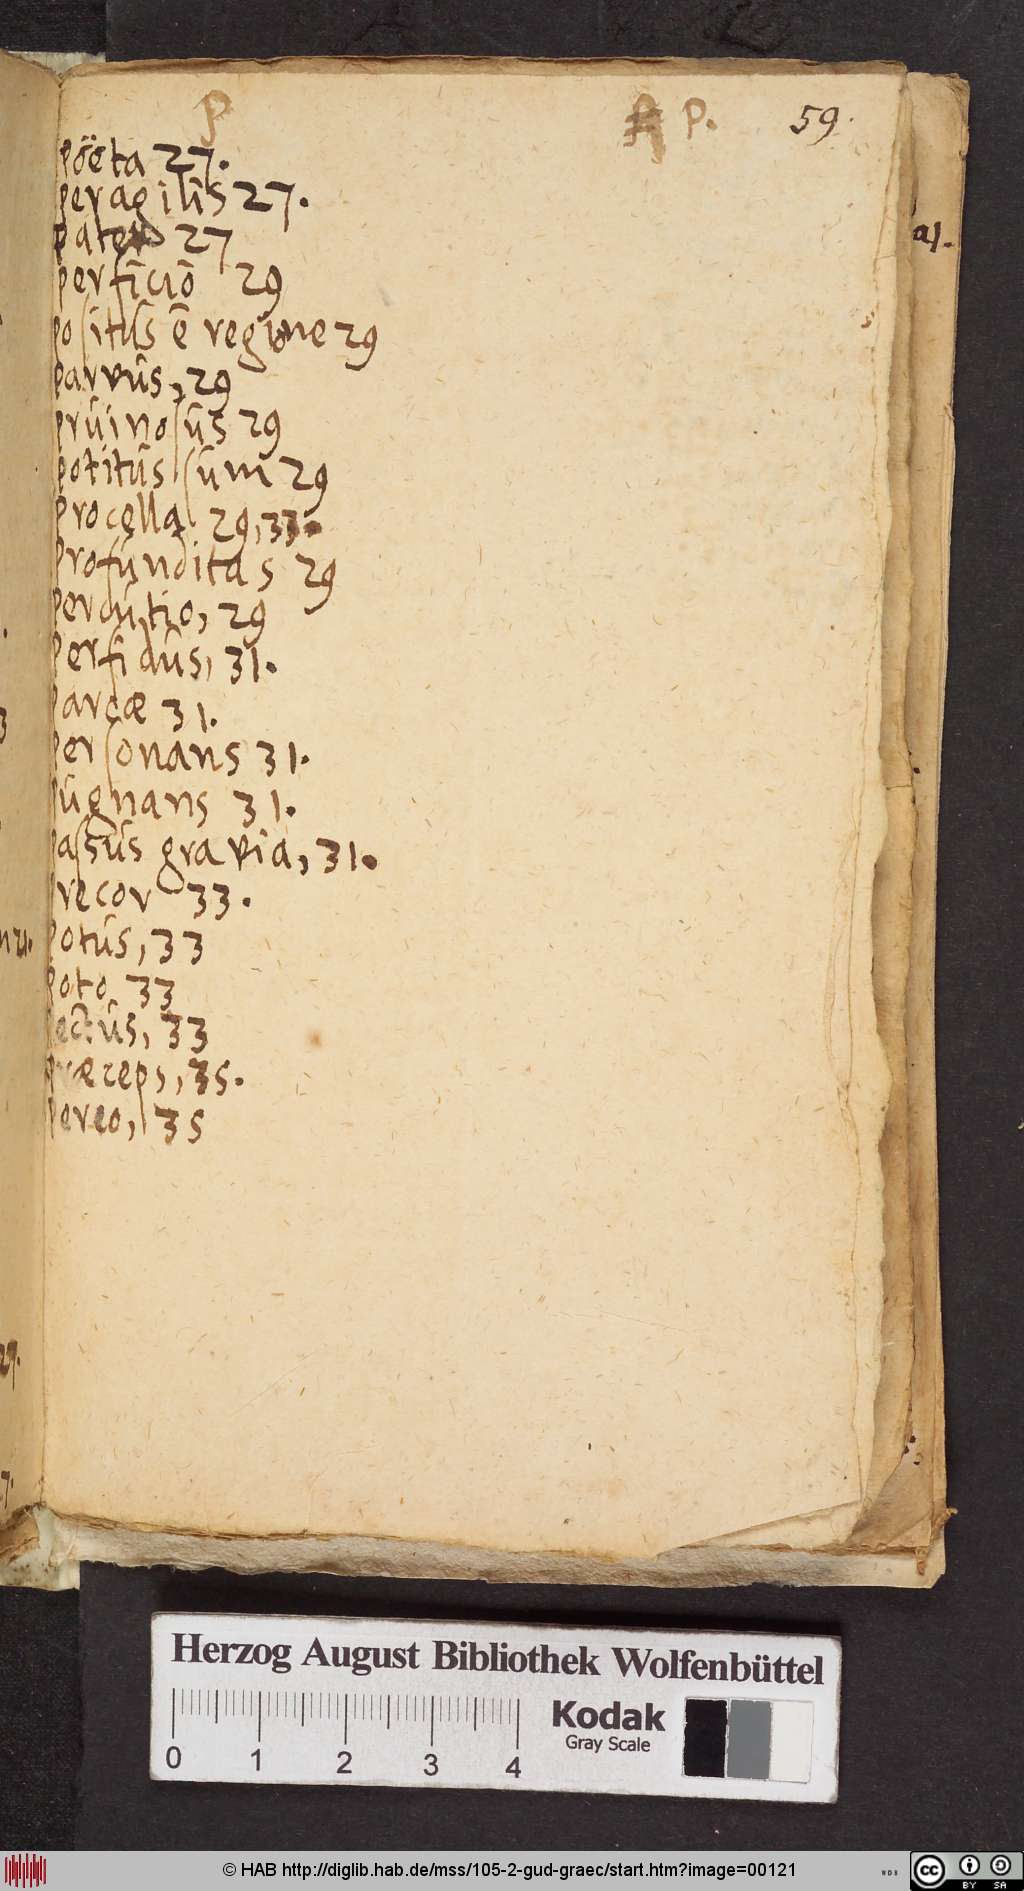 P
P.
59.
pöeta 27.
peragilis 27.
27
perficiō 29
positus ē regione 29
parvus, 29
pruinosus 29
potitus sum 29
procella 29, 33.
Profunditas 29
Percutio, 29
Perfidus, 31.
Parcæ 31.
Personans 31.
Pugnans 31.
Passus gravia, 31.
Precor 33.
Potus, 33
Poto 33
Pectus, 33
Præceps, 35.
Pereo, 35
al.
n 21.
29.
7.
Herzog August Bibliothek Wolfenbüttel
Kodak
Gray Scale
0 1 2 3 4
© HAB http://diglib.hab.de/mss/105-2-gud-graec/start.htm?image=00121
WDB
cc BY SA